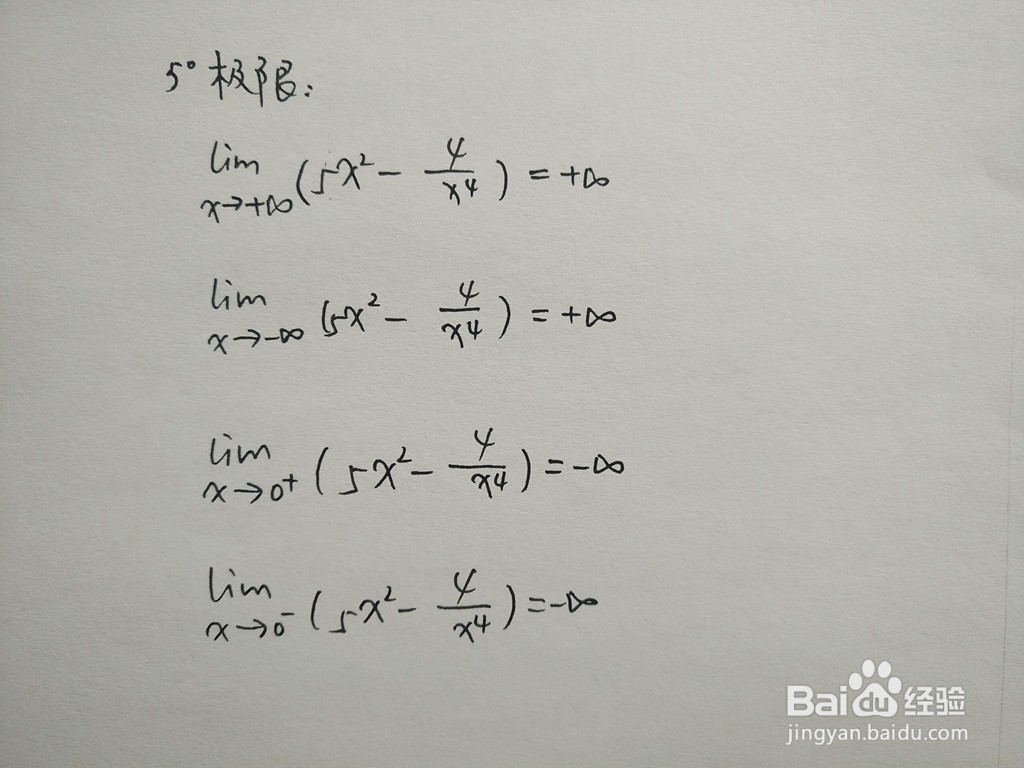 5° 极限:
lim x→+∞ (5x² - 4/x⁴) = +∞
lim x→-∞ (5x² - 4/x⁴) = +∞
lim x→0⁺ (5x² - 4/x⁴) = -∞
lim x→0⁻ (5x² - 4/x⁴) = -∞
Baidu 经验
jingyan.baidu.com